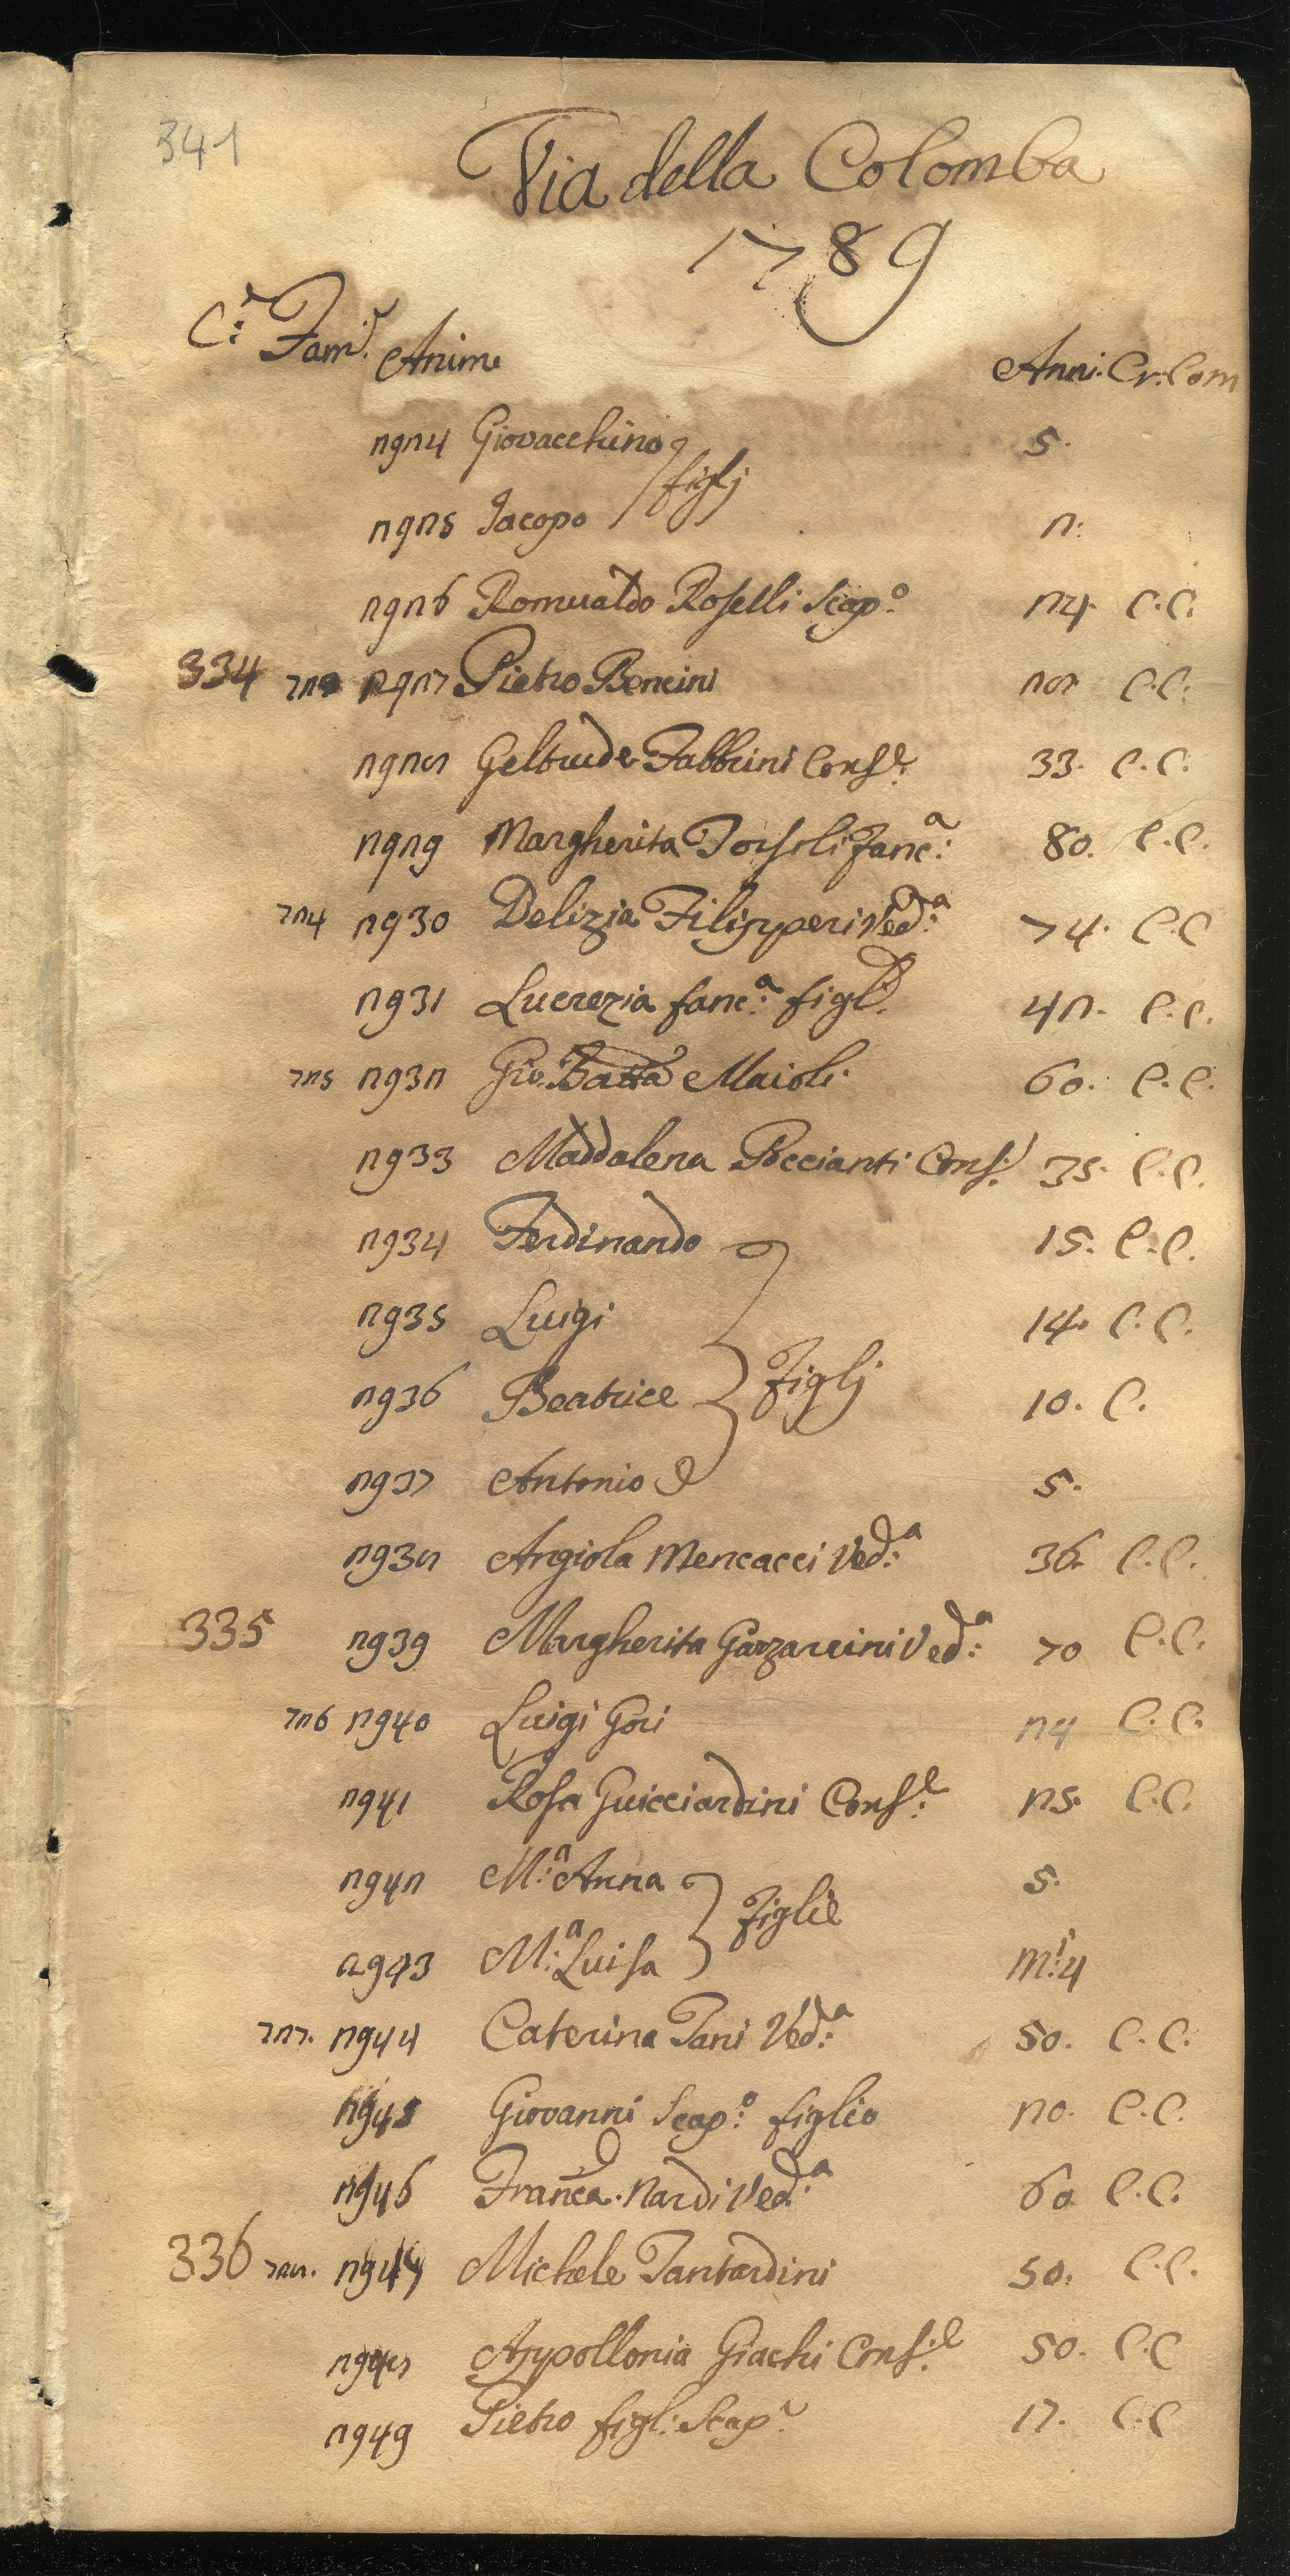 341
Via della Colomba
1789
C:e Fam:e Anime Anni. Cr: Com
2924 Giovacchino 5.
figlj
2925 Jacopo 2:
2926 Romualdo Roselli Scap:o 24. C.C.
334 723 2927 Pietro Bencini 28 C.C.
2928 Geltrude Fabbrini Cons:e 33. C.C.
2929 Margherita Torsoli fanc:a 80. C.C.
724 2930 Delizia Filipperi Ved:a 74. C.C
2931 Lucrezia fanc:a figl: 42. C.C.
725 2932 Gio. Batta Maioli 60. C.C.
2933 Maddalena Poccianti Cons: 35. C.C.
2934 Ferdinando 15. C.C.
2935 Luigi 14. C.C.
figlj
2936 Beatrice 10. C.
2937 Antonio 5.
2938 Angiola Mencacci Ved:a 36. C.C.
335 2939 Margherita Garzarini Ved:a 70 C.C.
726 2940 Luigi Gori 24 C.C.
2941 Rosa Guicciardini Cons:e 25. C.C.
2942 M:a Anna 5.
figlie
2943 M:a Luisa m:i 4
727. 2944 Caterina Tani Ved:a 50. C.C.
2945 Giovanni Scap:o figlio 20. C.C.
2946 Franca. Nardi Ved:a 60 C.C.
336 728. 2947 Michele Tantardini 50. C.C.
2948 Appollonia Giachi Cons:e 50. C.C
2949 Pietro figl: Scap: 17. C.C